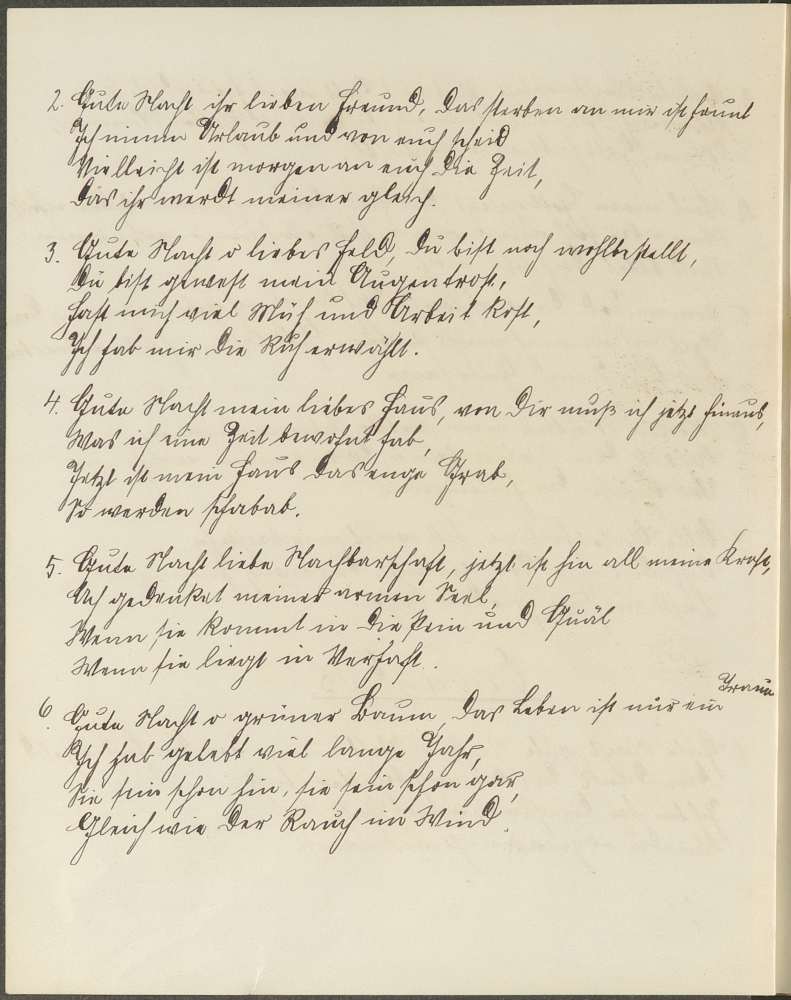 2. Gute Nacht ihr lieben Freund, das sterben an mir ist heunt
Ich nimm Urlaub und von euch scheid
Vielleicht ist morgen an euch die Zeit,
das ihr werdt meiner gleich.
3. Gute Nacht o liebes Feld, du bist noch wohlbestellt,
du bist gewest mein Augentrost,
hast mich viel Müh und Arbeit kost,
Ich hab mir die Ruh erwählt.
4. Gute Nacht mein liebes Haus, von Dir muß ich jetzt hinaus,
Was ich eine Zeit bewohnt hab,
Jetzt ist mein Haus das enge Grab,
So werden schabab.
5. Gute Nacht liebe Nachbarschaft, jetzt ist hin all meine Kraft,
Ach gedenket meiner armen Seel,
Wenn sie kommt in die Pein und Quäl
Wenn sie liegt in Verhaft.
6. Gute Nacht o grüner Baum, das Leben ist nur ein Traum
Ich hab gelebt viel lange Jahr,
Sie sein schon hin, sie sein schon gar,
Gleich wie der Rauch im Wind.